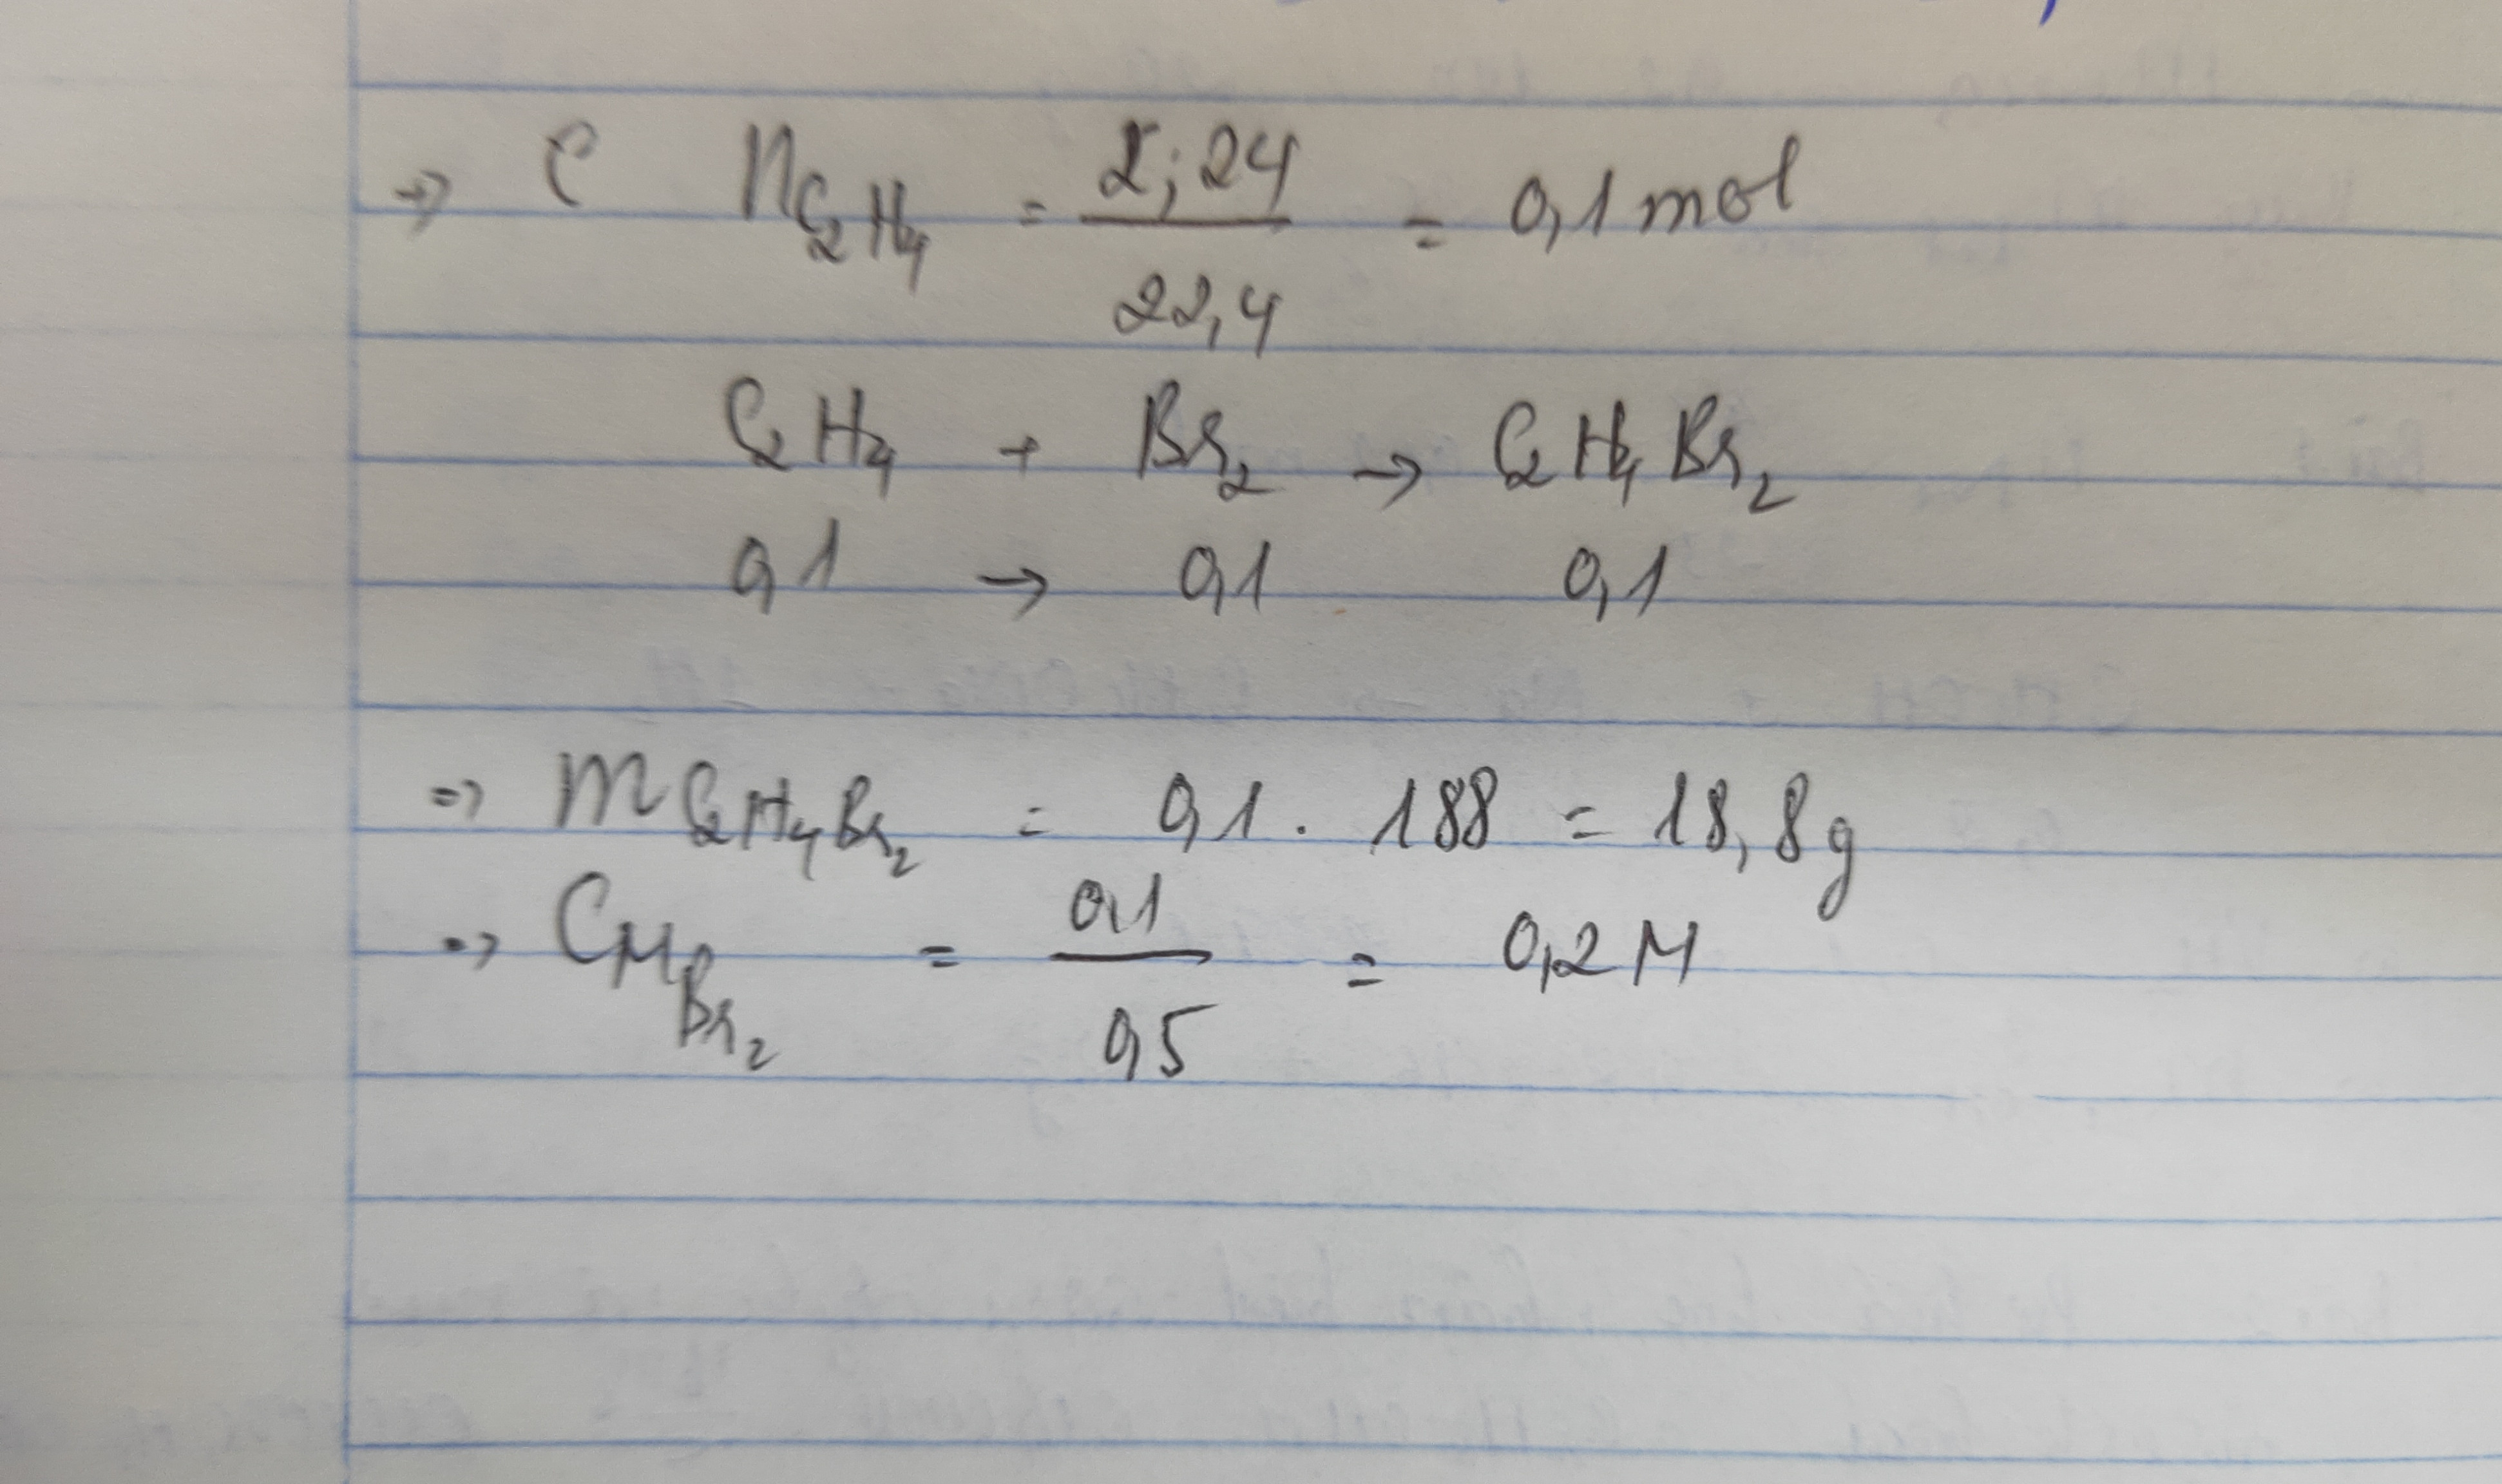 => C nC2H4 = 2,24/22,4 = 0,1 mol
C2H4 + Br2 → C2H4Br2
0,1 → 0,1 0,1
=> mC2H4Br2 = 0,1 . 188 = 18,8g
=> CMBr2 = 0,1/0,5 = 0,2M